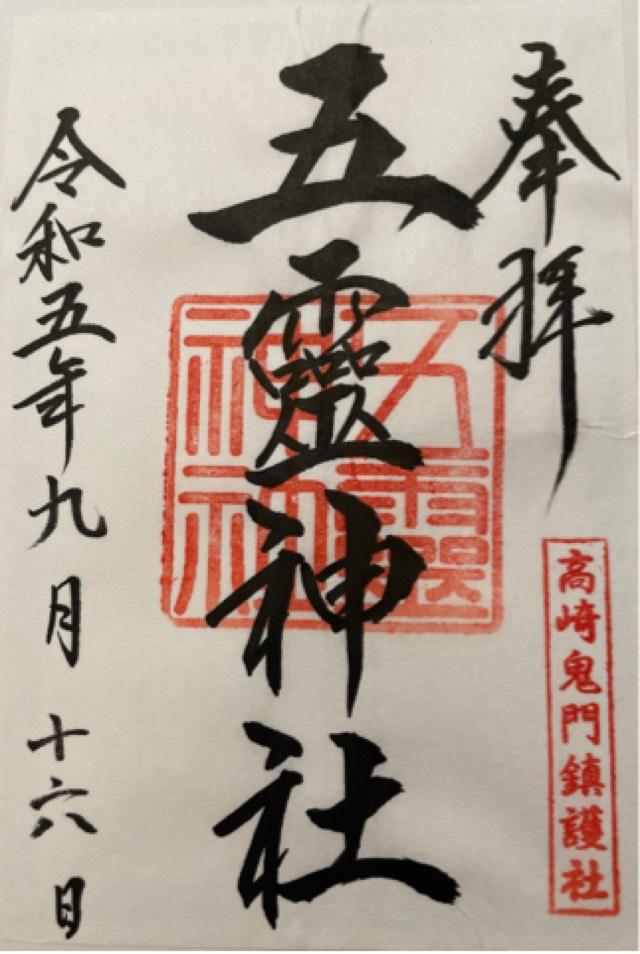 奉拝
高崎鬼門鎮護社
五靈神社
五靈神社
令和五年九月十六日